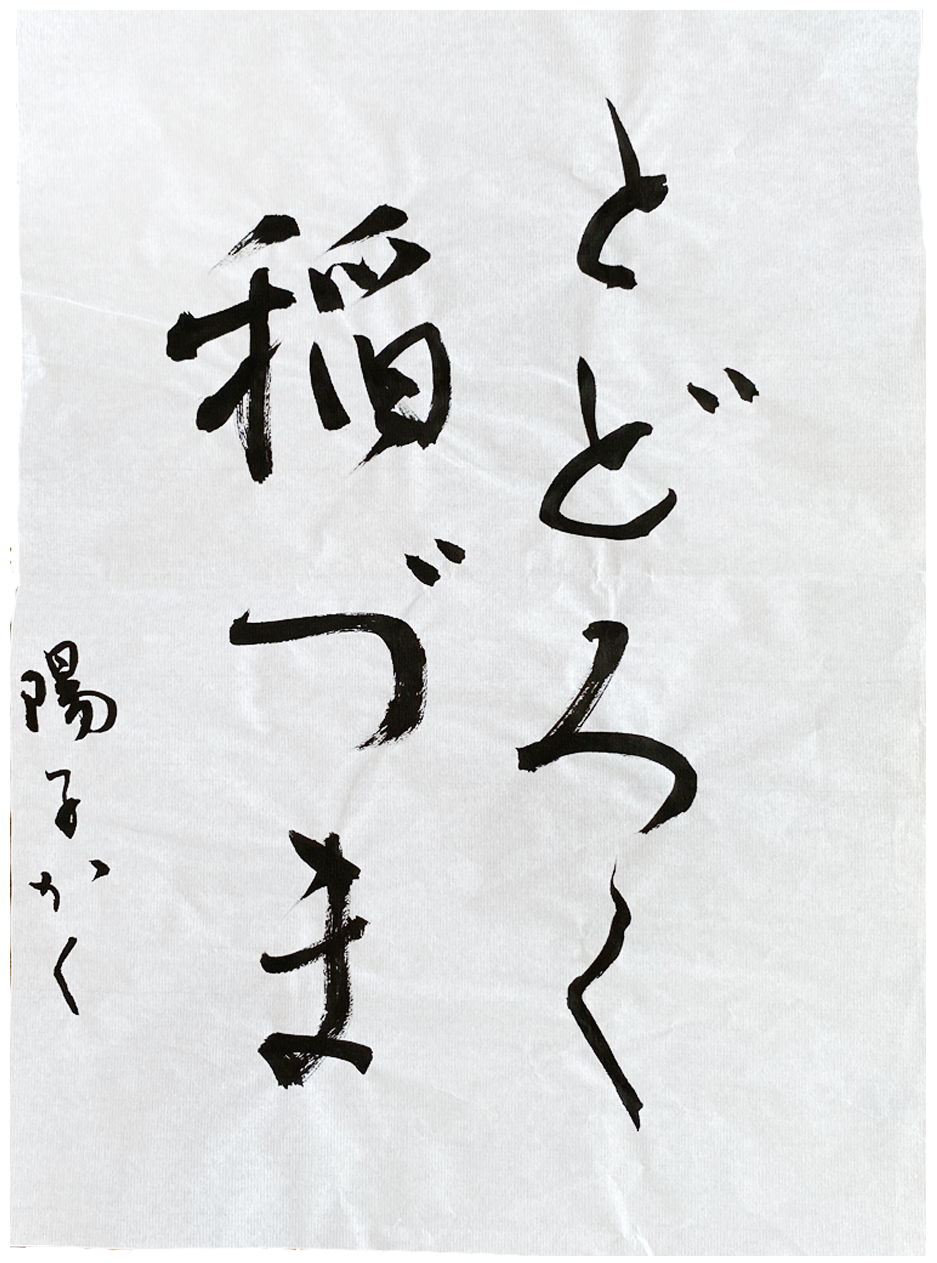 とどろく
稲づま
陽子かく